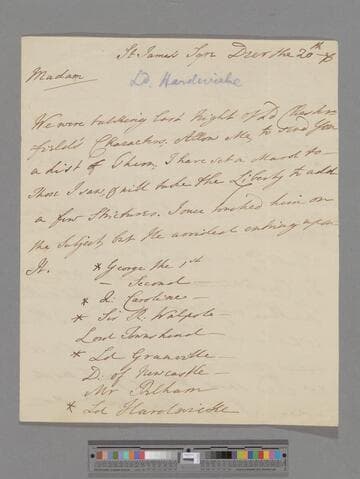 St James's Sqre Decr the 20th
Madam
Ld. Hardwicke
We were talking last Night of Ld Chester
field's Characters. Allow Me to send You
a List of Them, I have set a Mark to
Those I saw, & will take the Liberty to add
a few Strictures. I once touched him on
the subject, but He avoided entring upon
It.
* George the 1st
— Second —
* Q: Caroline —
* Sir R. Walpole
Lord Townshend
* Ld Granville
D: of Newcastle —
Mr Pelham
* Ld Hardwicke